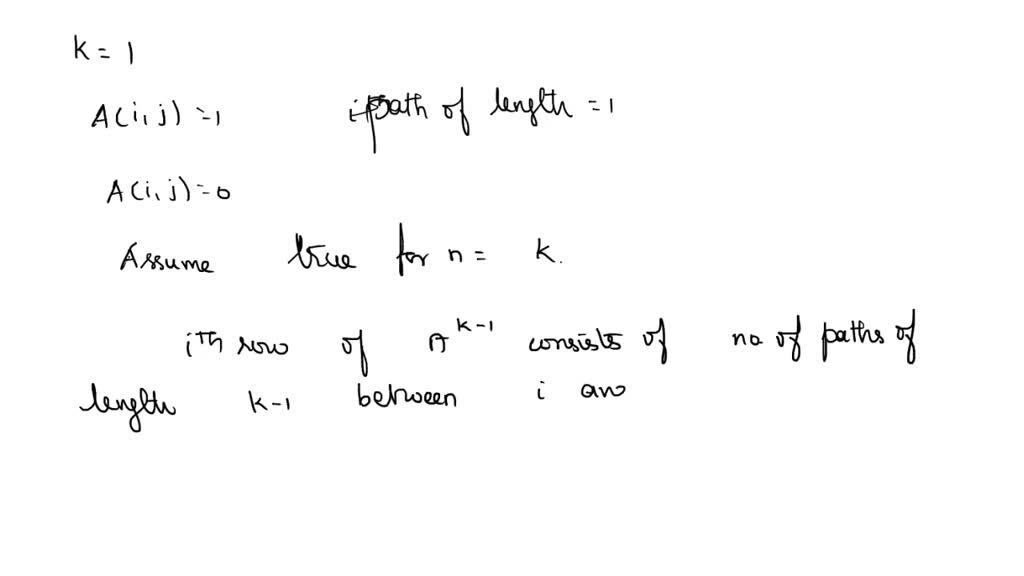 k = 1
A(i,j) = 1 if path of length = 1
A(i,j) = 0
Assume true for n = k.
ith row of A^k-1 consists of no of paths of
length k-1 between i and